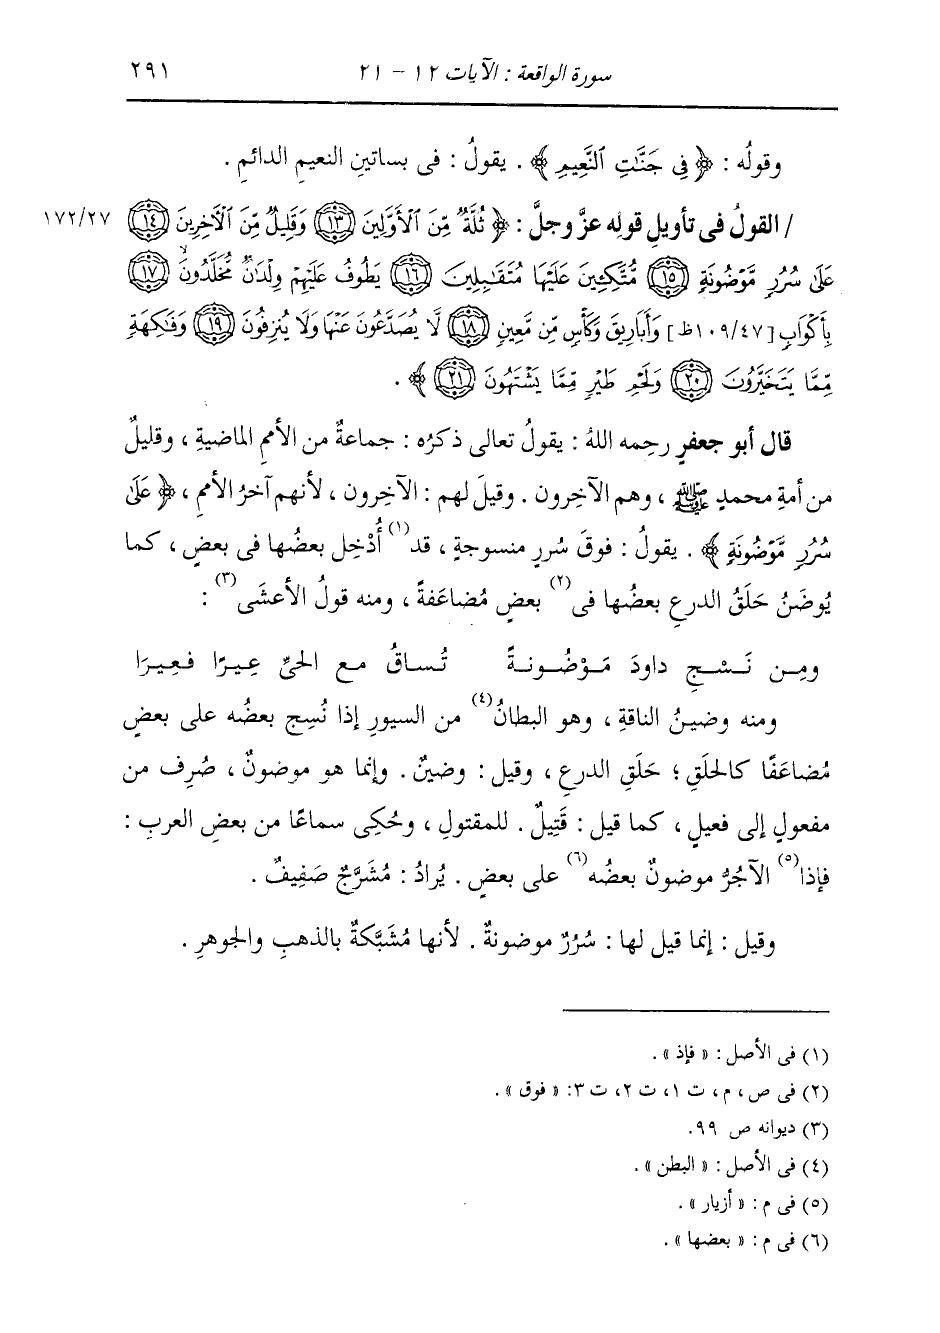 سورة الواقعة : الآيات ١٢ - ٢١ ٢٩١
وقولُه : ﴿ فِي جَنَّٰتِ ٱلنَّعِيمِ ﴾ . يقولُ : فى بساتينِ النعيمِ الدائمِ .
/ القولُ فى تأويلِ قولِه عزَّ وجلَّ : ﴿ ثُلَّةٌ مِّنَ ٱلْأَوَّلِينَ ١٣ وَقَلِيلٌ مِّنَ ٱلْآخِرِينَ ١٤ ١٧٢/٢٧
عَلَىٰ سُرُرٍ مَّوْضُونَةٍ ١٥ مُّتَّكِـِٔينَ عَلَيْهَا مُتَقَٰبِلِينَ ١٦ يَطُوفُ عَلَيْهِمْ وِلْدَٰنٌ مُّخَلَّدُونَ ١٧
بِأَكْوَابٍ [٤٧/١٠٩ظ] وَأَبَارِيقَ وَكَأْسٍ مِّن مَّعِينٍ ١٨ لَّا يُصَدَّعُونَ عَنْهَا وَلَا يُنزِفُونَ ١٩ وَفَٰكِهَةٍ
مِّمَّا يَتَخَيَّرُونَ ٢٠ وَلَحْمِ طَيْرٍ مِّمَّا يَشْتَهُونَ ٢١ ﴾ .
قال أبو جعفرٍ رحِمه اللهُ : يقولُ تعالى ذكرُه : جماعةٌ من الأممِ الماضيةِ ، وقليلٌ
من أمةِ محمدٍ ﷺ ، وهم الآخِرون . وقيلَ لهم : الآخِرون ، لأنهم آخرُ الأممِ ، ﴿ عَلَىٰ
سُرُرٍ مَّوْضُونَةٍ ﴾ . يقولُ : فوقَ سُررٍ منسوجةٍ ، قد(١) أُدْخِل بعضُها فى بعضٍ ، كما
يُوضَنُ حَلَقُ الدرعِ بعضُها فى(٢) بعضٍ مُضاعَفةً ، ومنه قولُ الأعشَى(٣) :
ومِن نَسْجِ داودَ مَوْضُونةً تُساقُ مع الحىِّ عِيرًا فعِيرَا
ومنه وضينُ الناقةِ ، وهو البطانُ(٤) من السيورِ إذا نُسِج بعضُه على بعضٍ
مُضاعَفًا كالحلَقِ ؛ حَلَقِ الدرعِ ، وقيل : وضينٌ . وإنما هو موضونٌ ، صُرِف من
مفعولٍ إلى فعيلٍ ، كما قيل : قَتِيلٌ . للمقتولِ ، وحُكِى سماعًا من بعضِ العربِ :
فإذا(٥) الآجُرُّ موضونٌ بعضُه(٦) على بعضٍ . يُرادُ : مُشَرَّجٌ صَفِيفٌ .
وقيل : إنما قيل لها : سُرُرٌ موضونةٌ . لأنها مُشَبَّكةٌ بالذهبِ والجوهرِ .
(١) فى الأصل : « فإذ » .
(٢) فى ص ، م ، ت ١، ت ٢، ت ٣: « فوق » .
(٣) ديوانه ص ٩٩.
(٤) فى الأصل : « البطن » .
(٥) فى م : « أزيار » .
(٦) فى م : « بعضها » .